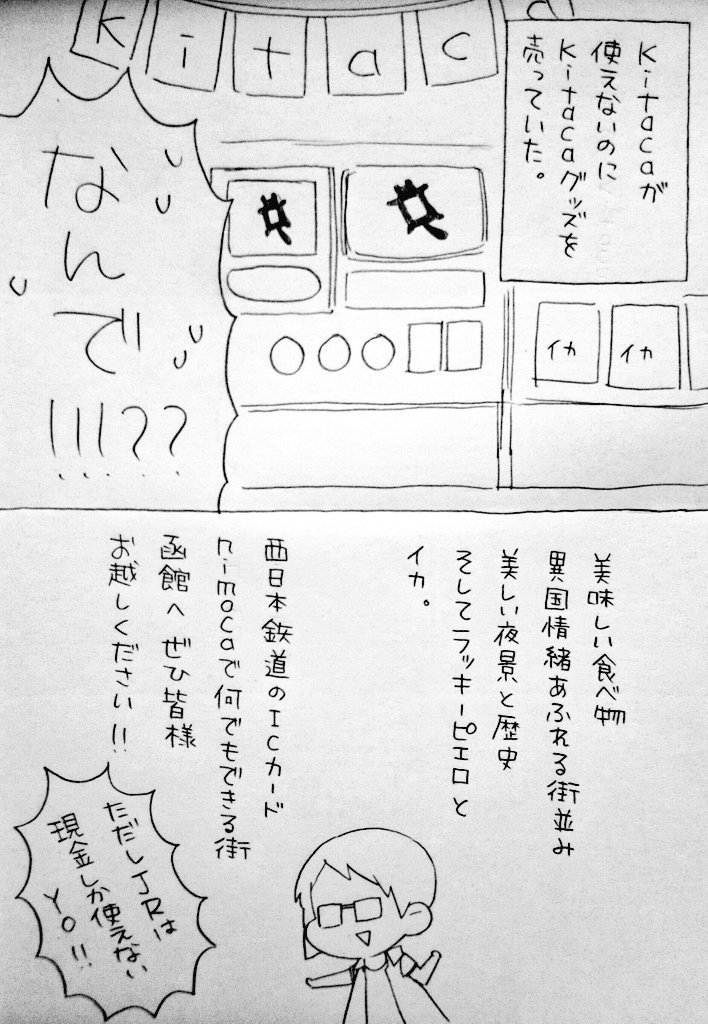 Kitaca
Kitacaが
使えないのに
Kitacaグッズを
売っていた。
なんで
!!!??
イカ
イカ
美味しい食べ物
異国情緒あふれる街並み
美しい夜景と歴史
そしてラッキーピエロと
イカ。
西日本鉄道のICカード
nimocaで何でもできる街
函館へぜひ皆様
お越しください!!
ただしJRは
現金しか使えない
YO!!